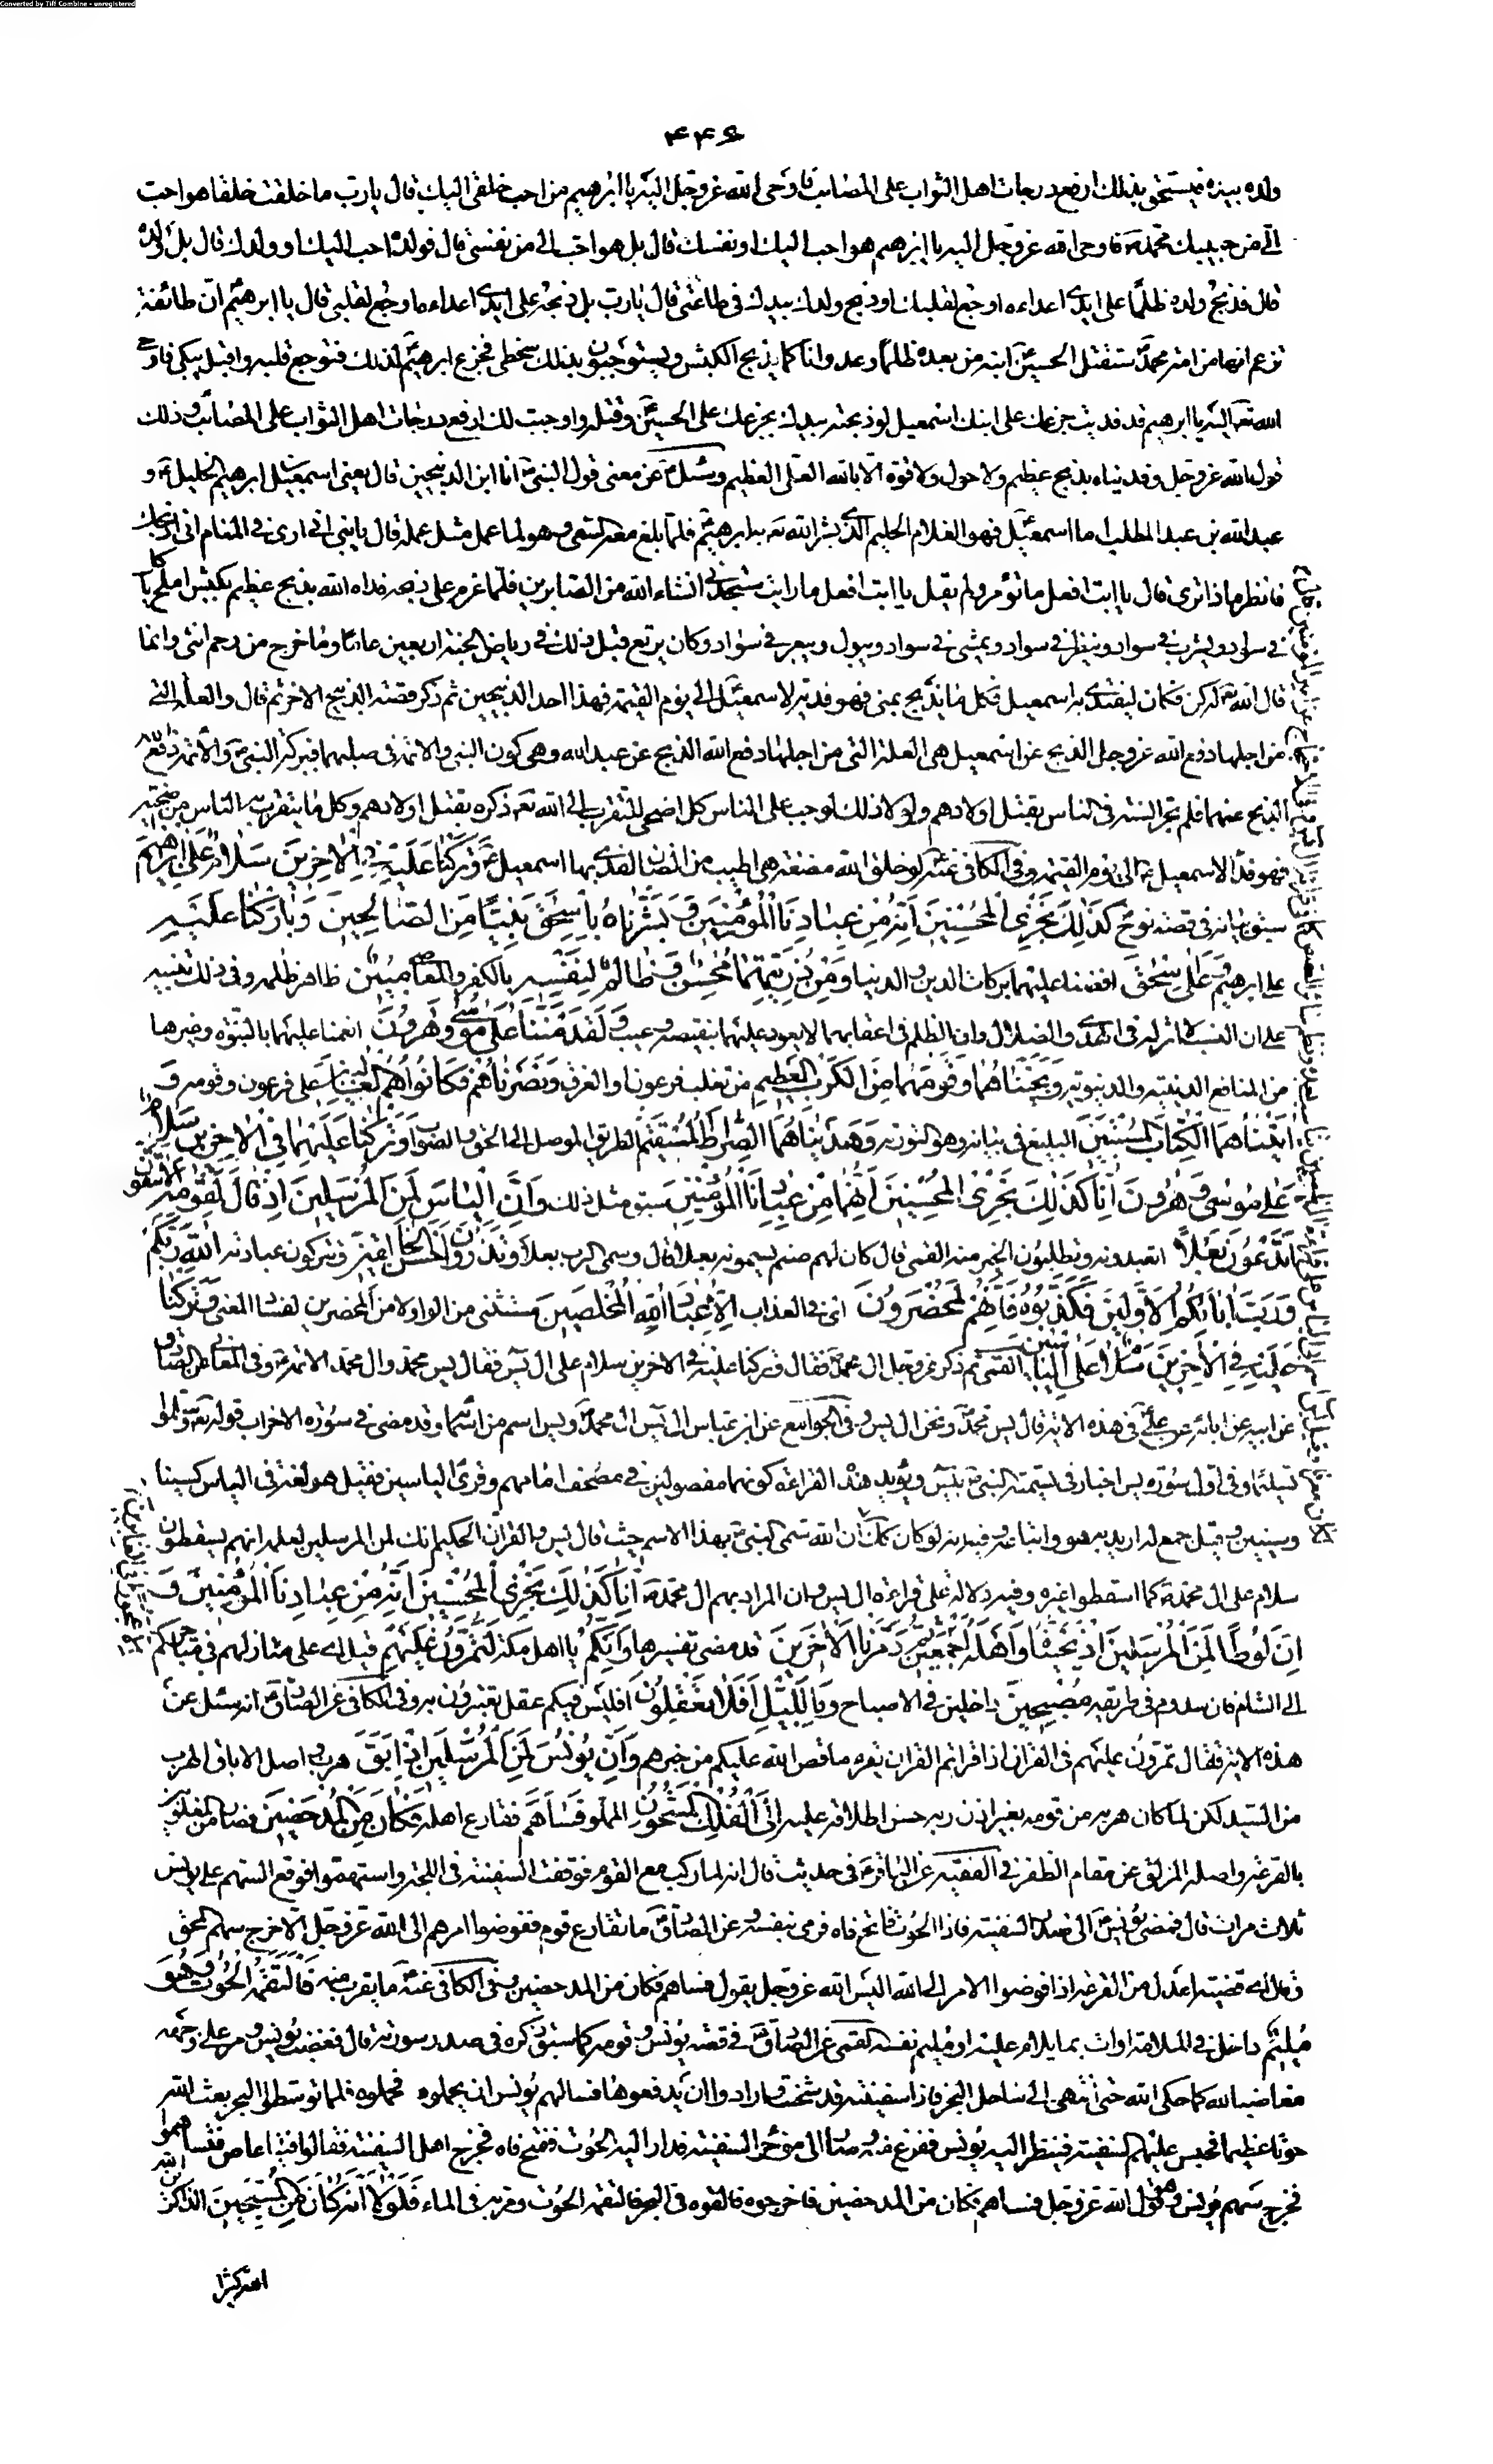 Converted by Tiff Combine - unregistered
۴۴۶
ولده بيده فيستحق بذلك ارفع درجات اهل الثواب على المصائب فاوحى الله عزوجل اليه يا ابرهيم من احب خلقى اليك قال يا رب ما خلقت خلقا هو احب
الى من حبيبك محمد ص فاوحى الله عزوجل اليه يا ابرهيم هو احب اليك او نفسك قال بل هو احب الى من نفسى قال فولده احب اليك او ولدك قال بل ولده
قال فذبح ولده ظلما على ايدى اعداءه اوجع لقلبك او ذبح ولدك بيدك فى طاعتى قال يا رب بل ذبحه على ايدى اعداءه اوجع لقلبى قال يا ابرهيم ان طائفة
تزعم انها من امة محمد ستقتل الحسين ابنه من بعده ظلما وعدوانا كما يذبح الكبش ويستوجبون بذلك سخطى فجزع ابرهيم لذلك فتوجع قلبه واقبل يبكى فاوحى
الله تعالى اليه يا ابرهيم قد فديت جزعك على ابنك اسمعيل لو ذبحته بيدك بجزعك على الحسين وقتله واوجبت لك ارفع درجات اهل الثواب على المصائب وذلك
قول الله عزوجل وفديناه بذبح عظيم ولا حول ولا قوة الا بالله العلى العظيم وسئل عن معنى قول النبى ص انا ابن الذبيحين قال يعنى اسمعيل بن ابرهيم الخليل ع و
عبدالله بن عبد المطلب اما اسمعيل فهو الغلام الحليم الذى بشر الله به ابرهيم فلما بلغ معه السعى وهو لما عمل مثل عمله قال يا بنى انى ارى فى المنام انى اذبحك
فانظر ماذا ترى قال يا ابت افعل ما تؤمر ولم يقل يا ابت افعل ما رايت ستجدنى انشاء الله من الصابرين فلما عزم على ذبحه فداه الله بذبح عظيم بكبش املح ياكل
فى سواد ويشرب فى سواد وينظر فى سواد ويمشى فى سواد ويبول ويبعر فى سواد وكان يرتع قبل ذلك فى رياض الجنة اربعين عاما وما خرج من رحم انثى وانما
قال الله تعالى له كن فكان ليفتدى به اسمعيل فكل ما يذبح بمنى فهو فدية لاسمعيل الى يوم القيمة فهذا احد الذبيحين ثم ذكر قصة الذبيح الاخر ثم قال والعلة التى
من اجلها دفع الله عزوجل الذبح عن اسمعيل هى العلة التى من اجلها دفع الله الذبح عن عبدالله وهى كون النبى والائمة فى صلبهما فببركة النبى ص والائمة ع دفع الله
الذبح عنهما فلم تجر السنة فى الناس بقتل اولادهم ولولا ذلك لوجب على الناس كل اضحى التقرب الى الله تعالى ذكره بقتل اولادهم وكل ما يتقرب به الناس من اضحية
فهو فداء لاسمعيل الى يوم القيمة وفى الكافى عنه لو خلق الله مضغة هى اطيب من الضان لفدى بها اسمعيل ع وَتَرَكْنَا عَلَيْهِ فِى الْاخِرِينَ سَلَامٌ عَلى اِبْرهِيمَ
سبق بيانه فى قصة نوح كَذلِكَ نَجْزِى الْمُحْسِنِينَ اِنَّهُ مِنْ عِبَادِنَا الْمُؤْمِنِينَ وَبَشَّرْنَاهُ بِاِسْحقَ نَبِيًّا مِنَ الصَّالِحِينَ وَبَارَكْنَا عَلَيْهِ
على ابرهيم وَعَلى اِسْحقَ افضنا عليهما بركات الدين والدنيا وَمِنْ ذُرِّيَّتِهِمَا مُحْسِنٌ وَظَالِمٌ لِنَفْسِهِ بالكفر والمعاصى مُبِينٌ ظاهر ظلمه وفى ذلك تنبيه
على ان النسب لا اثر له فى الهدى والضلال وان الظلم فى اعقابهما لا يعود عليهما بنقيصة وعيب وَلَقَدْ مَنَنَّا عَلى مُوسى وَهرُونَ انعمنا عليهما بالنبوة وغيرها
من المنافع الدينية والدنيوية وَنَجَّيْنَاهُمَا وَقَوْمَهُمَا مِنَ الْكَرْبِ الْعَظِيمِ من تغلب فرعون او الغرق وَنَصَرْنَاهُمْ فَكَانُوا هُمُ الْغَالِبِينَ على فرعون وقومه وَ
اتَيْنَاهُمَا الْكِتَابَ الْمُسْتَبِينَ البليغ فى بيانه وهو التورية وَهَدَيْنَاهُمَا الصِّرَاطَ الْمُسْتَقِيمَ الطريق الموصل الى الحق والصواب وَتَرَكْنَا عَلَيْهِمَا فِى الْاخِرِينَ سَلَامٌ
عَلى مُوسى وَهرُونَ اِنَّا كَذلِكَ نَجْزِى الْمُحْسِنِينَ اِنَّهُمَا مِنْ عِبَادِنَا الْمُؤْمِنِينَ سبق مثل ذلك وَاِنَّ اِلْيَاسَ لَمِنَ الْمُرْسَلِينَ اِذْ قَالَ لِقَوْمِهِ اَلَا تَتَّقُونَ
اَتَدْعُونَ بَعْلًا اتعبدونه وتطلبون الخير منه القمى قال كان لهم صنم يسمونه بعلا قال وسمى الرب بعلا وَتَذَرُونَ اَحْسَنَ الْخَالِقِينَ وتتركون عبادته اَللهَ رَبَّكُمْ
وَرَبَّ ابَائِكُمُ الْاَوَّلِينَ فَكَذَّبُوهُ فَاِنَّهُمْ لَمُحْضَرُونَ اى فى العذاب اِلَّا عِبَادَ اللهِ الْمُخْلَصِينَ مستثنى من الواو لا من المحضرين لفساد المعنى وَتَرَكْنَا
عَلَيْهِ فِى الْاخِرِينَ سَلَامٌ عَلى اِلْيَاسِينَ القمى ثم ذكر عزوجل ال محمد ص فقال وتركنا عليه فى الاخرين سلام على ال يس فقال يس محمد وال محمد الائمة ع وفى المعانى عن الصادق
عن ابيه عن ابائه عن على ع فى هذه الاية قال يس محمد ونحن ال يس وفى الجوامع عن ابن عباس ال يس ال محمد ص ويس اسم من اسمائه وقد مضى فى سورة الاحزاب قوله تعالى وسلموا
تسليما وفى اول سورة يس اخبار فى تسمية النبى ص بيس ويؤيد هذه القراءة كونهما مفصولين فى مصحف امامهم وقرئ الياسين فقيل هو لغة فى الياس كسينا
وسينين وقيل جمع له اريد به هو واتباعه وفيه انه لو كان كذلك ان الله سمى النبى ص بهذا الاسم حيث قال يس والقرآن الحكيم انك لمن المرسلين لعلمه انهم يسقطون
سلام على ال محمد ص كما اسقطوا غيره وفيه دلالة على قراءة ال يس وان المراد بهم ال محمد ص اِنَّا كَذلِكَ نَجْزِى الْمُحْسِنِينَ اِنَّهُ مِنْ عِبَادِنَا الْمُؤْمِنِينَ وَ
اِنَّ لُوطًا لَمِنَ الْمُرْسَلِينَ اِذْ نَجَّيْنَاهُ وَاَهْلَهُ اَجْمَعِينَ ثُمَّ دَمَّرْنَا الْاخَرِينَ قد مضى تفسيرها وَاِنَّكُمْ يا اهل مكة لَتَمُرُّونَ عَلَيْهِمْ قيل اى على منازلهم فى متاجركم
الى الشام فان سدوم فى طريقه مُصْبِحِينَ داخلين فى الاصباح وَبِاللَّيْلِ اَفَلَا تَعْقِلُونَ افليس فيكم عقل تعتبرون به وفى الكافى عن الصادق انه سئل عن
هذه الاية فقال تمرون عليهم فى القرآن اذا قراتم القران تقرء ما قص الله عليكم من خبرهم وَاِنَّ يُونُسَ لَمِنَ الْمُرْسَلِينَ اِذْ اَبَقَ هرب واصل الاباق الهرب
من السيد لكن لما كان هربه من قومه بغير اذن ربه حسن اطلاقه عليه اِلَى الْفُلْكِ الْمَشْحُونِ المملو فَسَاهَمَ فقارع اهله فَكَانَ مِنَ الْمُدْحَضِينَ فصار من المغلوبين
بالقرعة واصله المزلق عن مقام الظفر فى الفقيه عن الباقر ع فى حديث قال انه لما ركب مع القوم فوقفت السفينة فى اللجة واستهموا فوقع السهم على يونس
ثلاث مرات قال فمضى يونس الى صدر السفينة فاذا الحوت فاتح فاه فرمى بنفسه وعن الصادق ما تقارع قوم ففوضوا امرهم الى الله عزوجل الا خرج سهم المحق
وقال اى قضية اعدل من القرعة اذا فوضوا الامر الى الله اليس الله عزوجل يقول فساهم فكان من المدحضين وفى الكافى عنه ما يقرب منه فَالْتَقَمَهُ الْحُوتُ وَهُوَ
مُلِيمٌ داخل فى الملامة او ات بما يلام عليه او مليم نفسه القمى عن الصادق فى قصة يونس وقومه كما سبق ذكره فى صدر سورته قال فغضب يونس ومر على وجهه
مغاضبا لله كما حكى الله حتى انتهى الى ساحل البحر فاذا سفينة قد شحنت وارادوا ان يدفعوها فسالهم يونس ان يحملوه فحملوه فلما توسطوا البحر بعث الله
حوتا عظيما فحبس عليهم السفينة فنظر اليه يونس ففزع فصار الى مؤخر السفينة فدار اليه الحوت ففتح فاه فخرج اهل السفينة فقالوا فينا عاص فتساهموا
فخرج سهم يونس وهو قول الله عزوجل فساهم فكان من المدحضين فاخرجوه فالقوه فى البحر فالتقمه الحوت ومر به فى الماء فَلَوْلَا اَنَّهُ كَانَ مِنَ الْمُسَبِّحِينَ الذاكرين
الله كثيرا